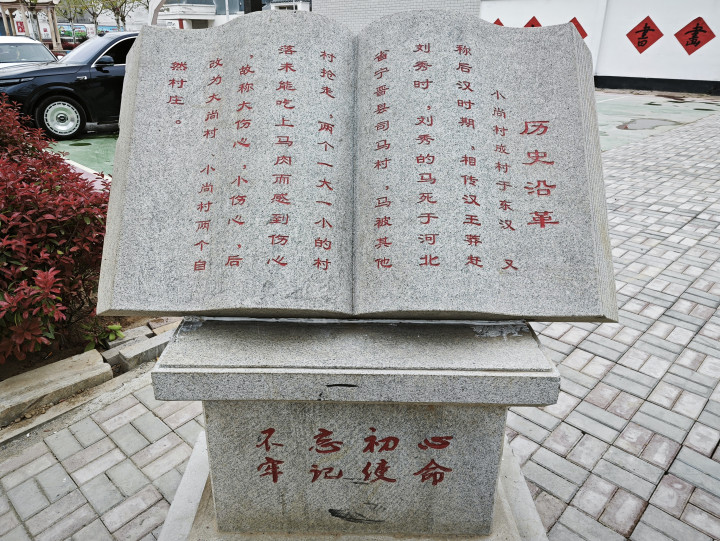 历史沿革
小尚村成村于东汉 又
称后汉时期，相传汉王莽赶
刘秀时，刘秀的马死于河北
省宁晋县司马村，马被其他
村抢走，两个一大一小的村
落未能吃上马肉而感到伤心
，故称大伤心，小伤心，后
改为大尚村、小尚村两个自
然村庄。
不忘初心
牢记使命
書畫